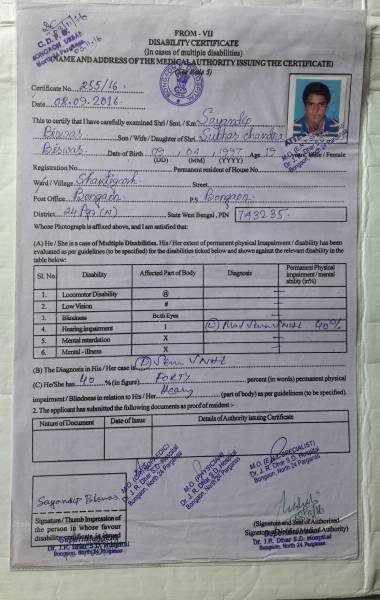 FROM - VII
DISABILITY CERTIFICATE
(In cases of multiple disabilities)
(NAME AND ADDRESS OF THE MEDICAL AUTHORITY ISSUING THE CERTIFICATE)
Certificate No. 255/16
Date 08.09.2016
This to certify that I have carefully examined Shri / Smt. / Km. Sayandip
Biswas Son / Wife / Daughter of Shri Subhas chandra
Biswas Date of Birth 09 04 1997 Age 19 Male / Female
(DD) (MM) (YYYY)
Registration No. Permanent resident of House No.
Ward / Village Street
Post Office Bongaon P.S Bongaon
District 24 Pgs (N) State West Bengal, PIN 743235
Whose Photograph is affixed above, and I am satisfied that:
(A) He / She is a case of Multiple Disabilities. His / Her extent of permanent physical Impairment / disability has
been evaluated as per guidelines (to be specified) for the disabilities ticked below and shown against the relevant disability in the
table below:
Sl. No. Disability Affected Part of Body Diagnosis Permanent Physical impairment / mental ability (in%)
1. Locomotor Disability @
2. Low Vision #
3. Blindness Both Eyes
4. Hearing impairment 40%
5. Mental retardation X
6. Mental - illness X
(B) The Diagnosis in His / Her case is
(C) He/She has 40 % (in figure) FORTY percent (in words) permanent physical
impairment / Blindness in relation to His / Her (part of body) as per guidelines (to be specified).
2. The applicant has submitted the following documents as proof of resident :-
Nature of Document Date of Issue Details of Authority issuing Certificate
M.O (ORTHOPEDIC)
Dr. J. R. Dhar S.D. Hospital
Bongaon, North 24 Parganas
M.O (PHYSICIAN)
Dr. J. R. Dhar S.D. Hospital
Bongaon, North 24 Parganas
Dr. J. R. Dhar S.D. Hospital
Bongaon, North 24 Parganas
Sayandip Biswas
Signature / Thumb Impression of
the person in whose favour
disability certificate is issued
(Signature and Seal of Authorized
Dr. J.R. Dhar S.D. Hospital
Bongaon, North 24 Parganas